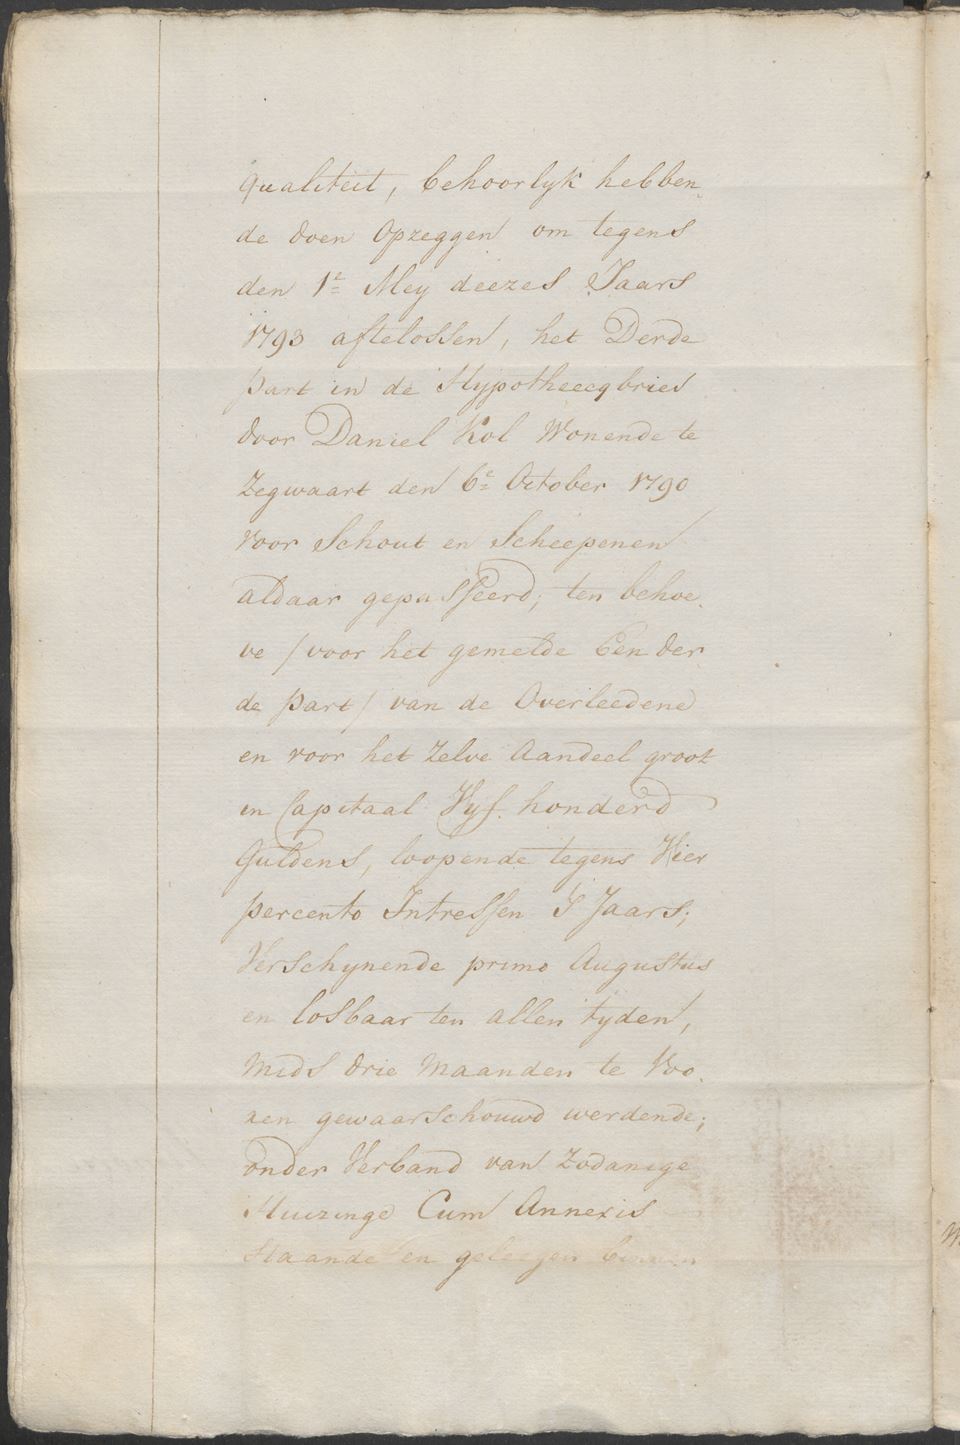 qualiteit, behoorlyk hebben„
de doen opzeggen om tegens
den 1e= Mey deezes Jaars
1793 aftelossen, het Derde
part in de Hypotheecqbrief
door Daniel Kol Wonende te
Zegwaart den 6e= October 1790
voor Schout en Scheepenen
aldaar gepasseerd; ten behoe„
ve / voor het gemelde Een der
de part / van de Overleedene
en voor het zelve Aandeel groot
in Capitaal Vyf honderd
Guldens, loopende tegens Vier
percento Intressen 's Jaars;
Verschynende primo Augustus
en losbaar ten allen tyden,
mids drie maanden te Voo„
ren gewaarschouwd werdende;
onder Verband van Zodanige
Huizinge Cum Annexis
staande en geleegen binnen